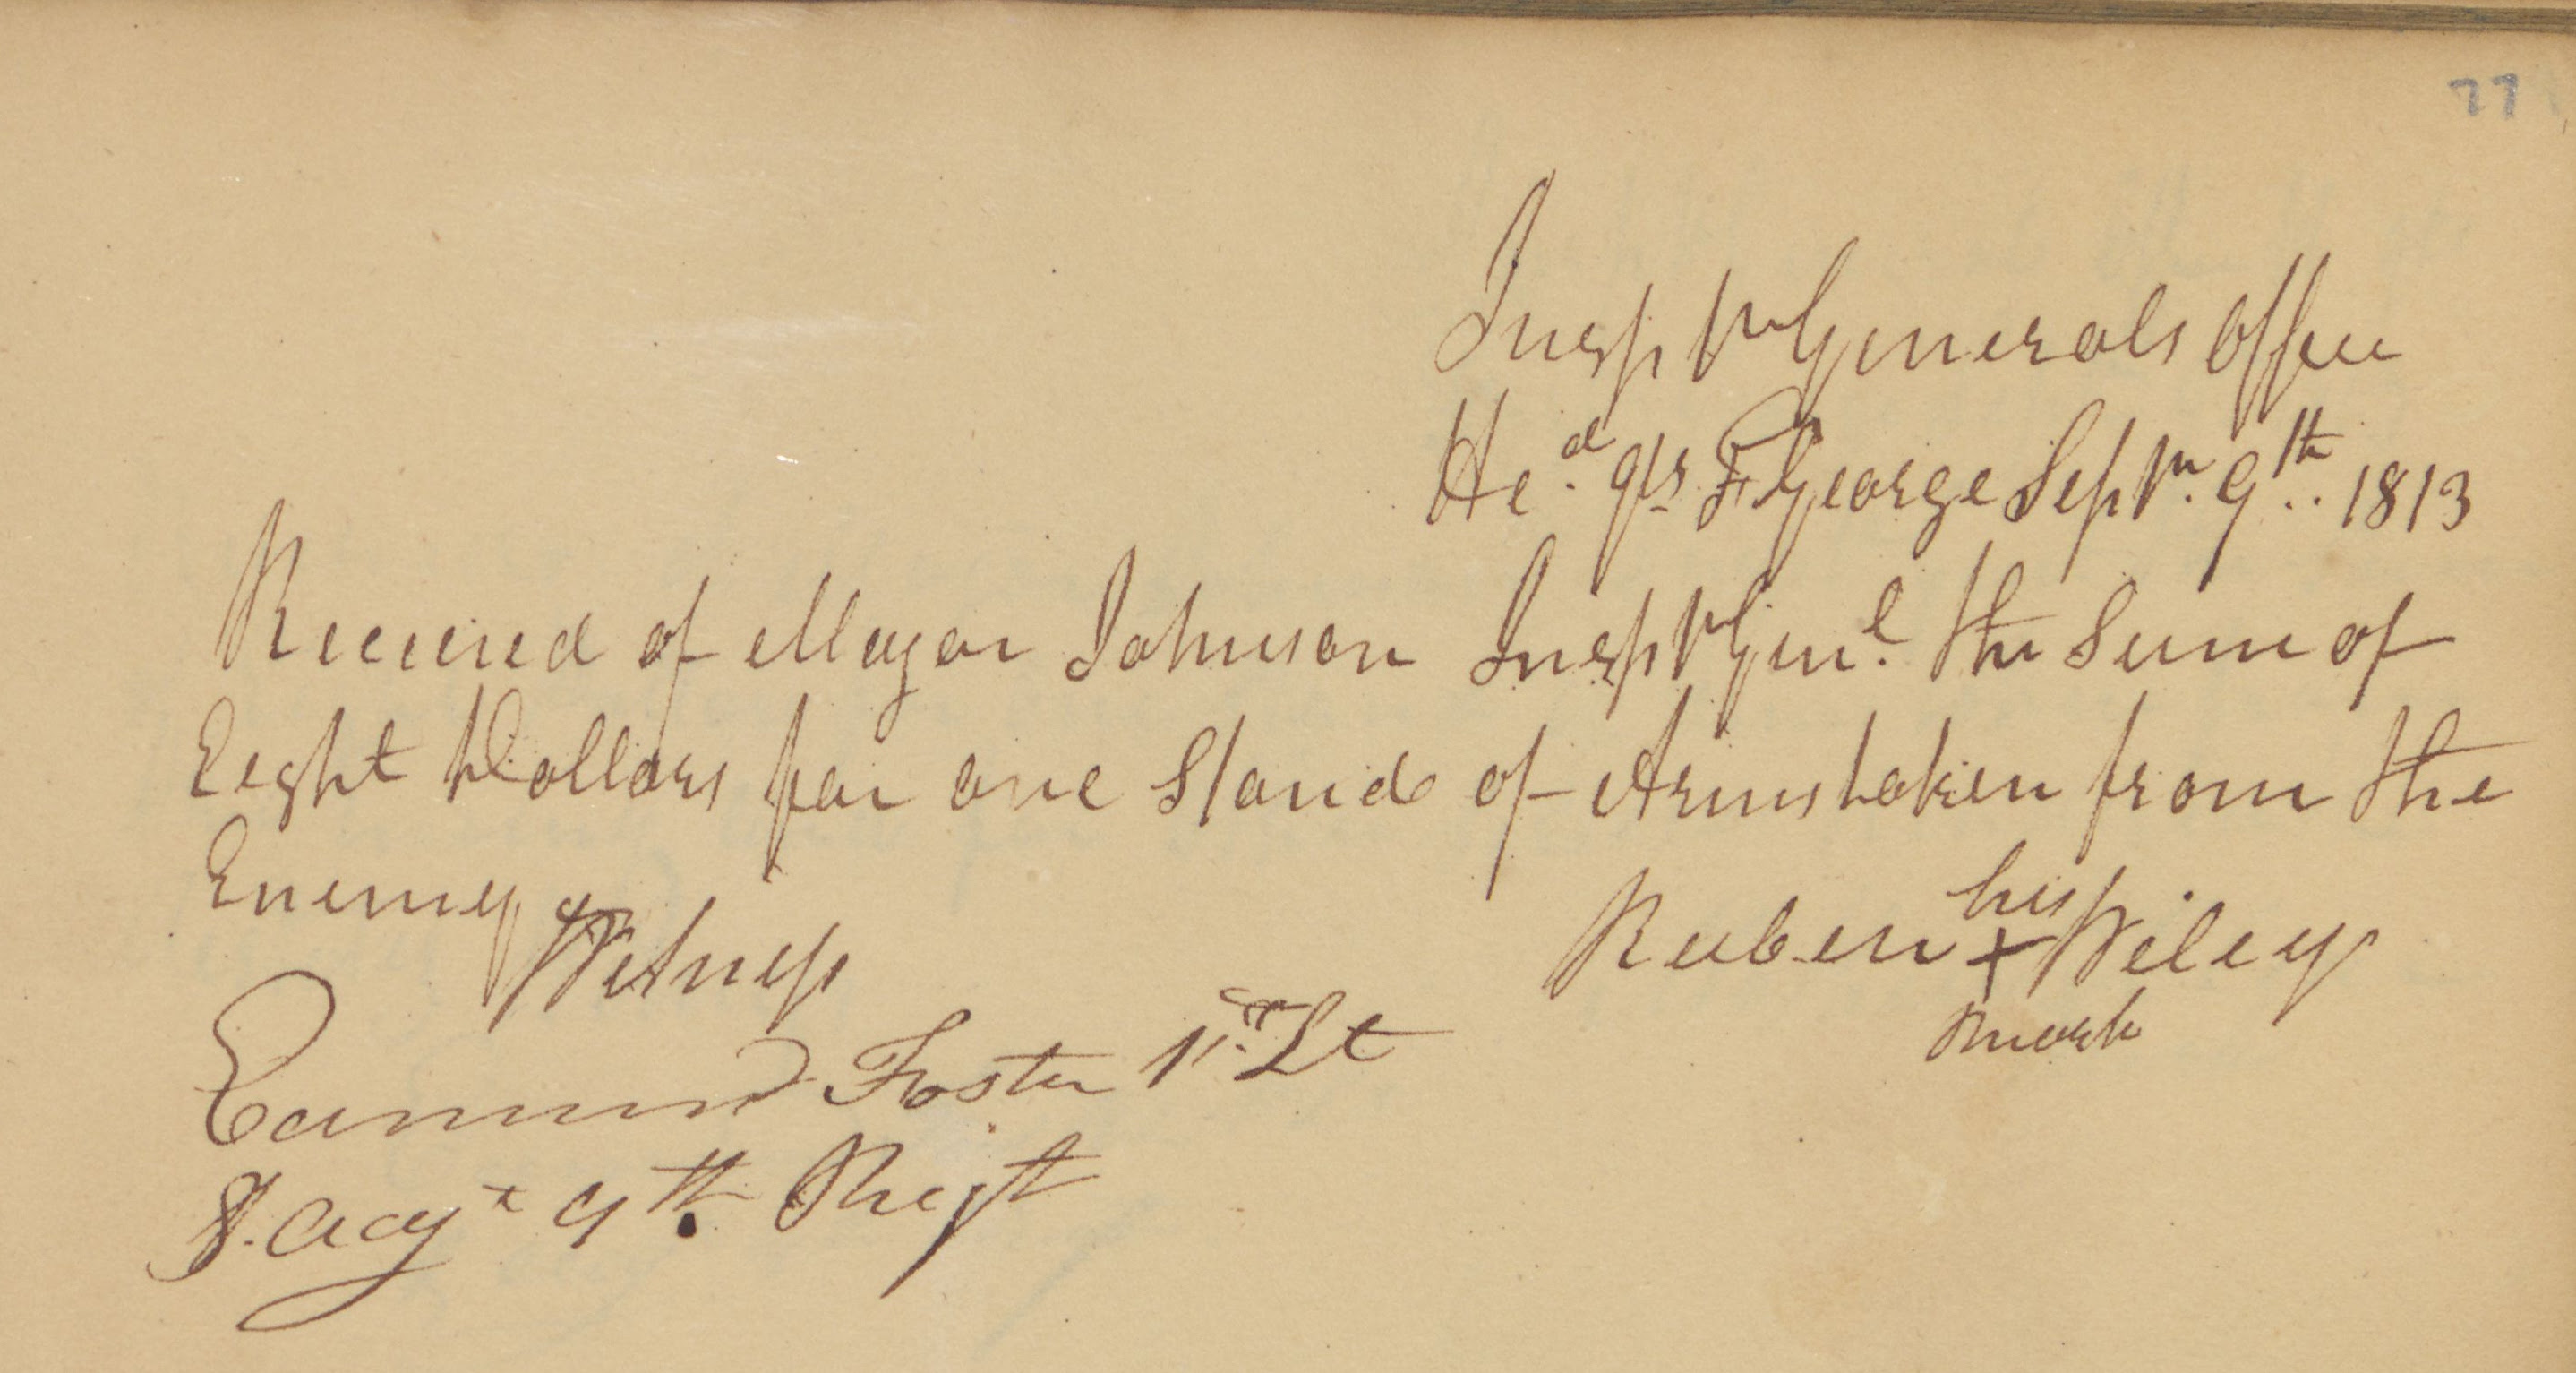 77
Inspt Generals Office
Hed. qrs Ft George Septr. 9th. 1813
Received of Major Johnson Inspt Genl. the Sum of
Eight Dollars for one Stand of Arms taken from the
Enemy
his
Ruben + Wiley
mark
Witness
Edmund Foster 1st Lt
& acgt 9th Regt